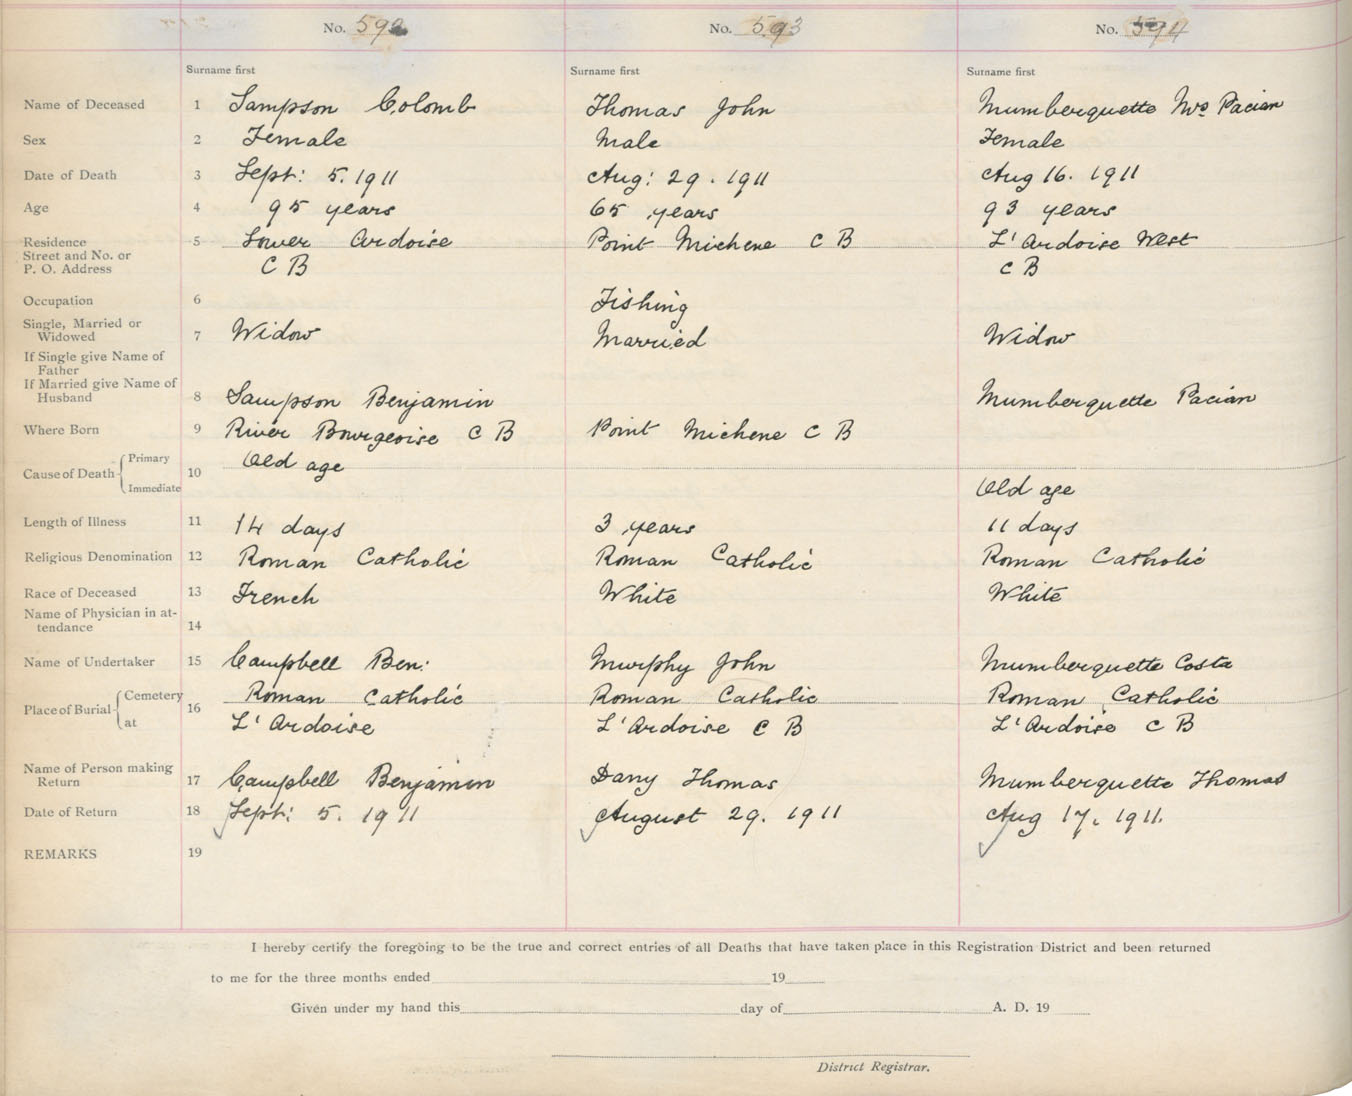 No. 592 No. 593 No. 594
Surname first Surname first Surname first
Name of Deceased 1 Sampson Colomb Thomas John Mumberquette Mrs Pacian
Sex 2 Female Male Female
Date of Death 3 Sept: 5. 1911 Aug: 29. 1911 Aug 16. 1911
Age 4 95 years 65 years 93 years
Residence 5 Lower Ardoise Point Michene C B L'Ardoise West
Street and No. or
P. O. Address C B C B
Occupation 6 Fishing
Single, Married or
Widowed 7 Widow Married Widow
If Single give Name of
Father
If Married give Name of
Husband 8 Sampson Benjamin Mumberquette Pacian
Where Born 9 River Bourgeoise C B Point Michene C B
Cause of Death Primary 10 Old age
Immediate Old age
Length of Illness 11 14 days 3 years 11 days
Religious Denomination 12 Roman Catholic Roman Catholic Roman Catholic
Race of Deceased 13 French White White
Name of Physician in at-
tendance 14
Name of Undertaker 15 Campbell Ben: Murphy John Mumberquette Costa
Place of Burial Cemetery 16 Roman Catholic Roman Catholic Roman Catholic
at L'Ardoise L'Ardoise C B L'Ardoise C B
Name of Person making
Return 17 Campbell Benjamin Dany Thomas Mumberquette Thomas
Date of Return 18 Sept: 5. 1911 August 29. 1911 Aug 17, 1911.
REMARKS 19
I hereby certify the foregoing to be the true and correct entries of all Deaths that have taken place in this Registration District and been returned
to me for the three months ended 19
Given under my hand this day of A. D. 19
District Registrar.